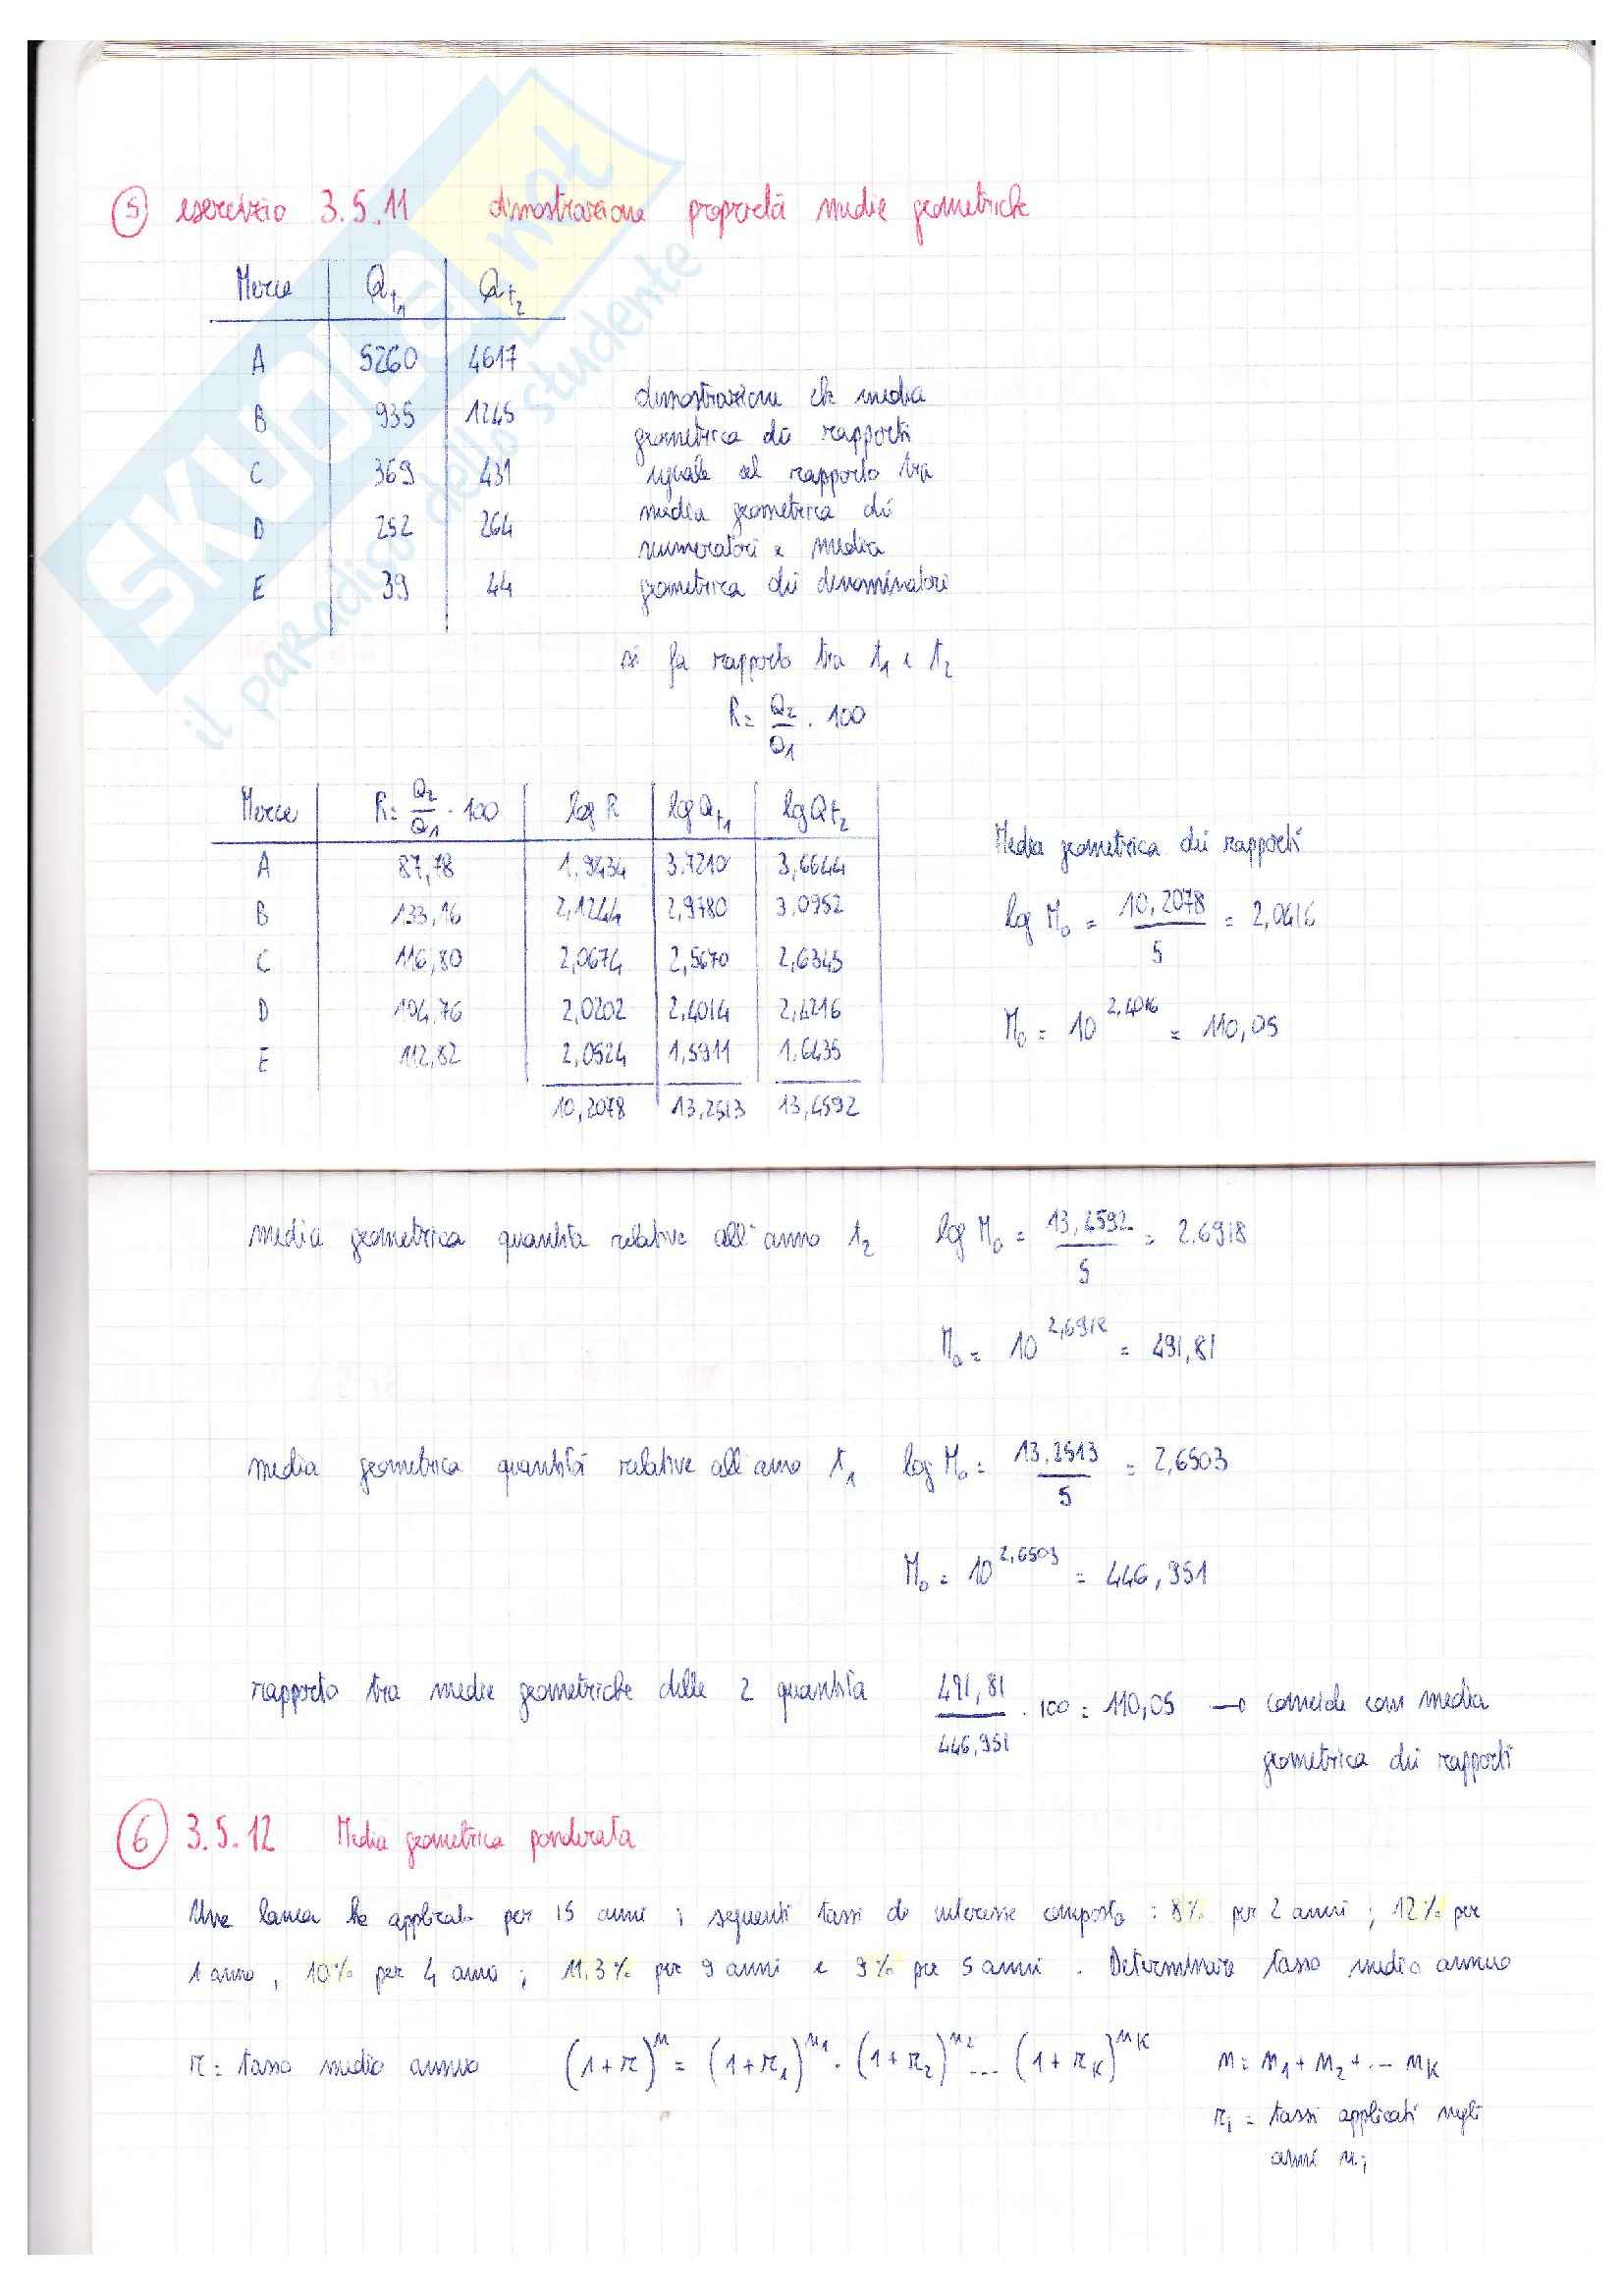 5 esercizio 3.5.11 dimostrazione proprietà medie geometriche
Merce Qt1 Qt2
A 5260 4617
B 935 1245
C 369 431
D 252 264
E 39 44
dimostrazione che media
geometrica dei rapporti
uguale al rapporto tra
media geometrica dei
numeratori e media
geometrica dei denominatori
si fa rapporto tra t1 e t2
R = Q2/Q1 · 100
Merce R = Q2/Q1 · 100 log R log Qt1 log Qt2
A 87,78 1,9434 3,7210 3,6644
B 133,16 2,1244 2,9780 3,0952
C 116,80 2,0674 2,5670 2,6345
D 104,76 2,0202 2,4014 2,4216
E 112,82 2,0524 1,5911 1,6435
10,2078 13,2513 13,4592
Media geometrica dei rapporti
log M0 = 10,2078/5 = 2,0416
M0 = 10^2,4016 = 110,05
media geometrica quantità relative all'anno t2 log M0 = 13,4592/5 = 2,6918
M0 = 10^2,6918 = 491,81
media geometrica quantità relative all'anno t1 log M0 = 13,2513/5 = 2,6503
M0 = 10^2,6503 = 446,951
rapporto tra medie geometriche delle 2 quantità 491,81/446,951 · 100 = 110,05 → coincide con media
geometrica dei rapporti
6 3.5.12 Media geometrica ponderata
Una banca ha applicato per 15 anni i seguenti tassi di interesse composto : 8% per 2 anni ; 12% per
1 anno , 10% per 4 anni ; 11,3% per 9 anni e 9% per 5 anni . Determinare tasso medio annuo
r = tasso medio annuo (1+r)^n = (1+r1)^n1 · (1+r2)^n2 ... (1+rK)^nK n = n1 + n2 + ... nK
ri = tassi applicati negli
anni ni
SKUOLA.net
il paradiso dello studente